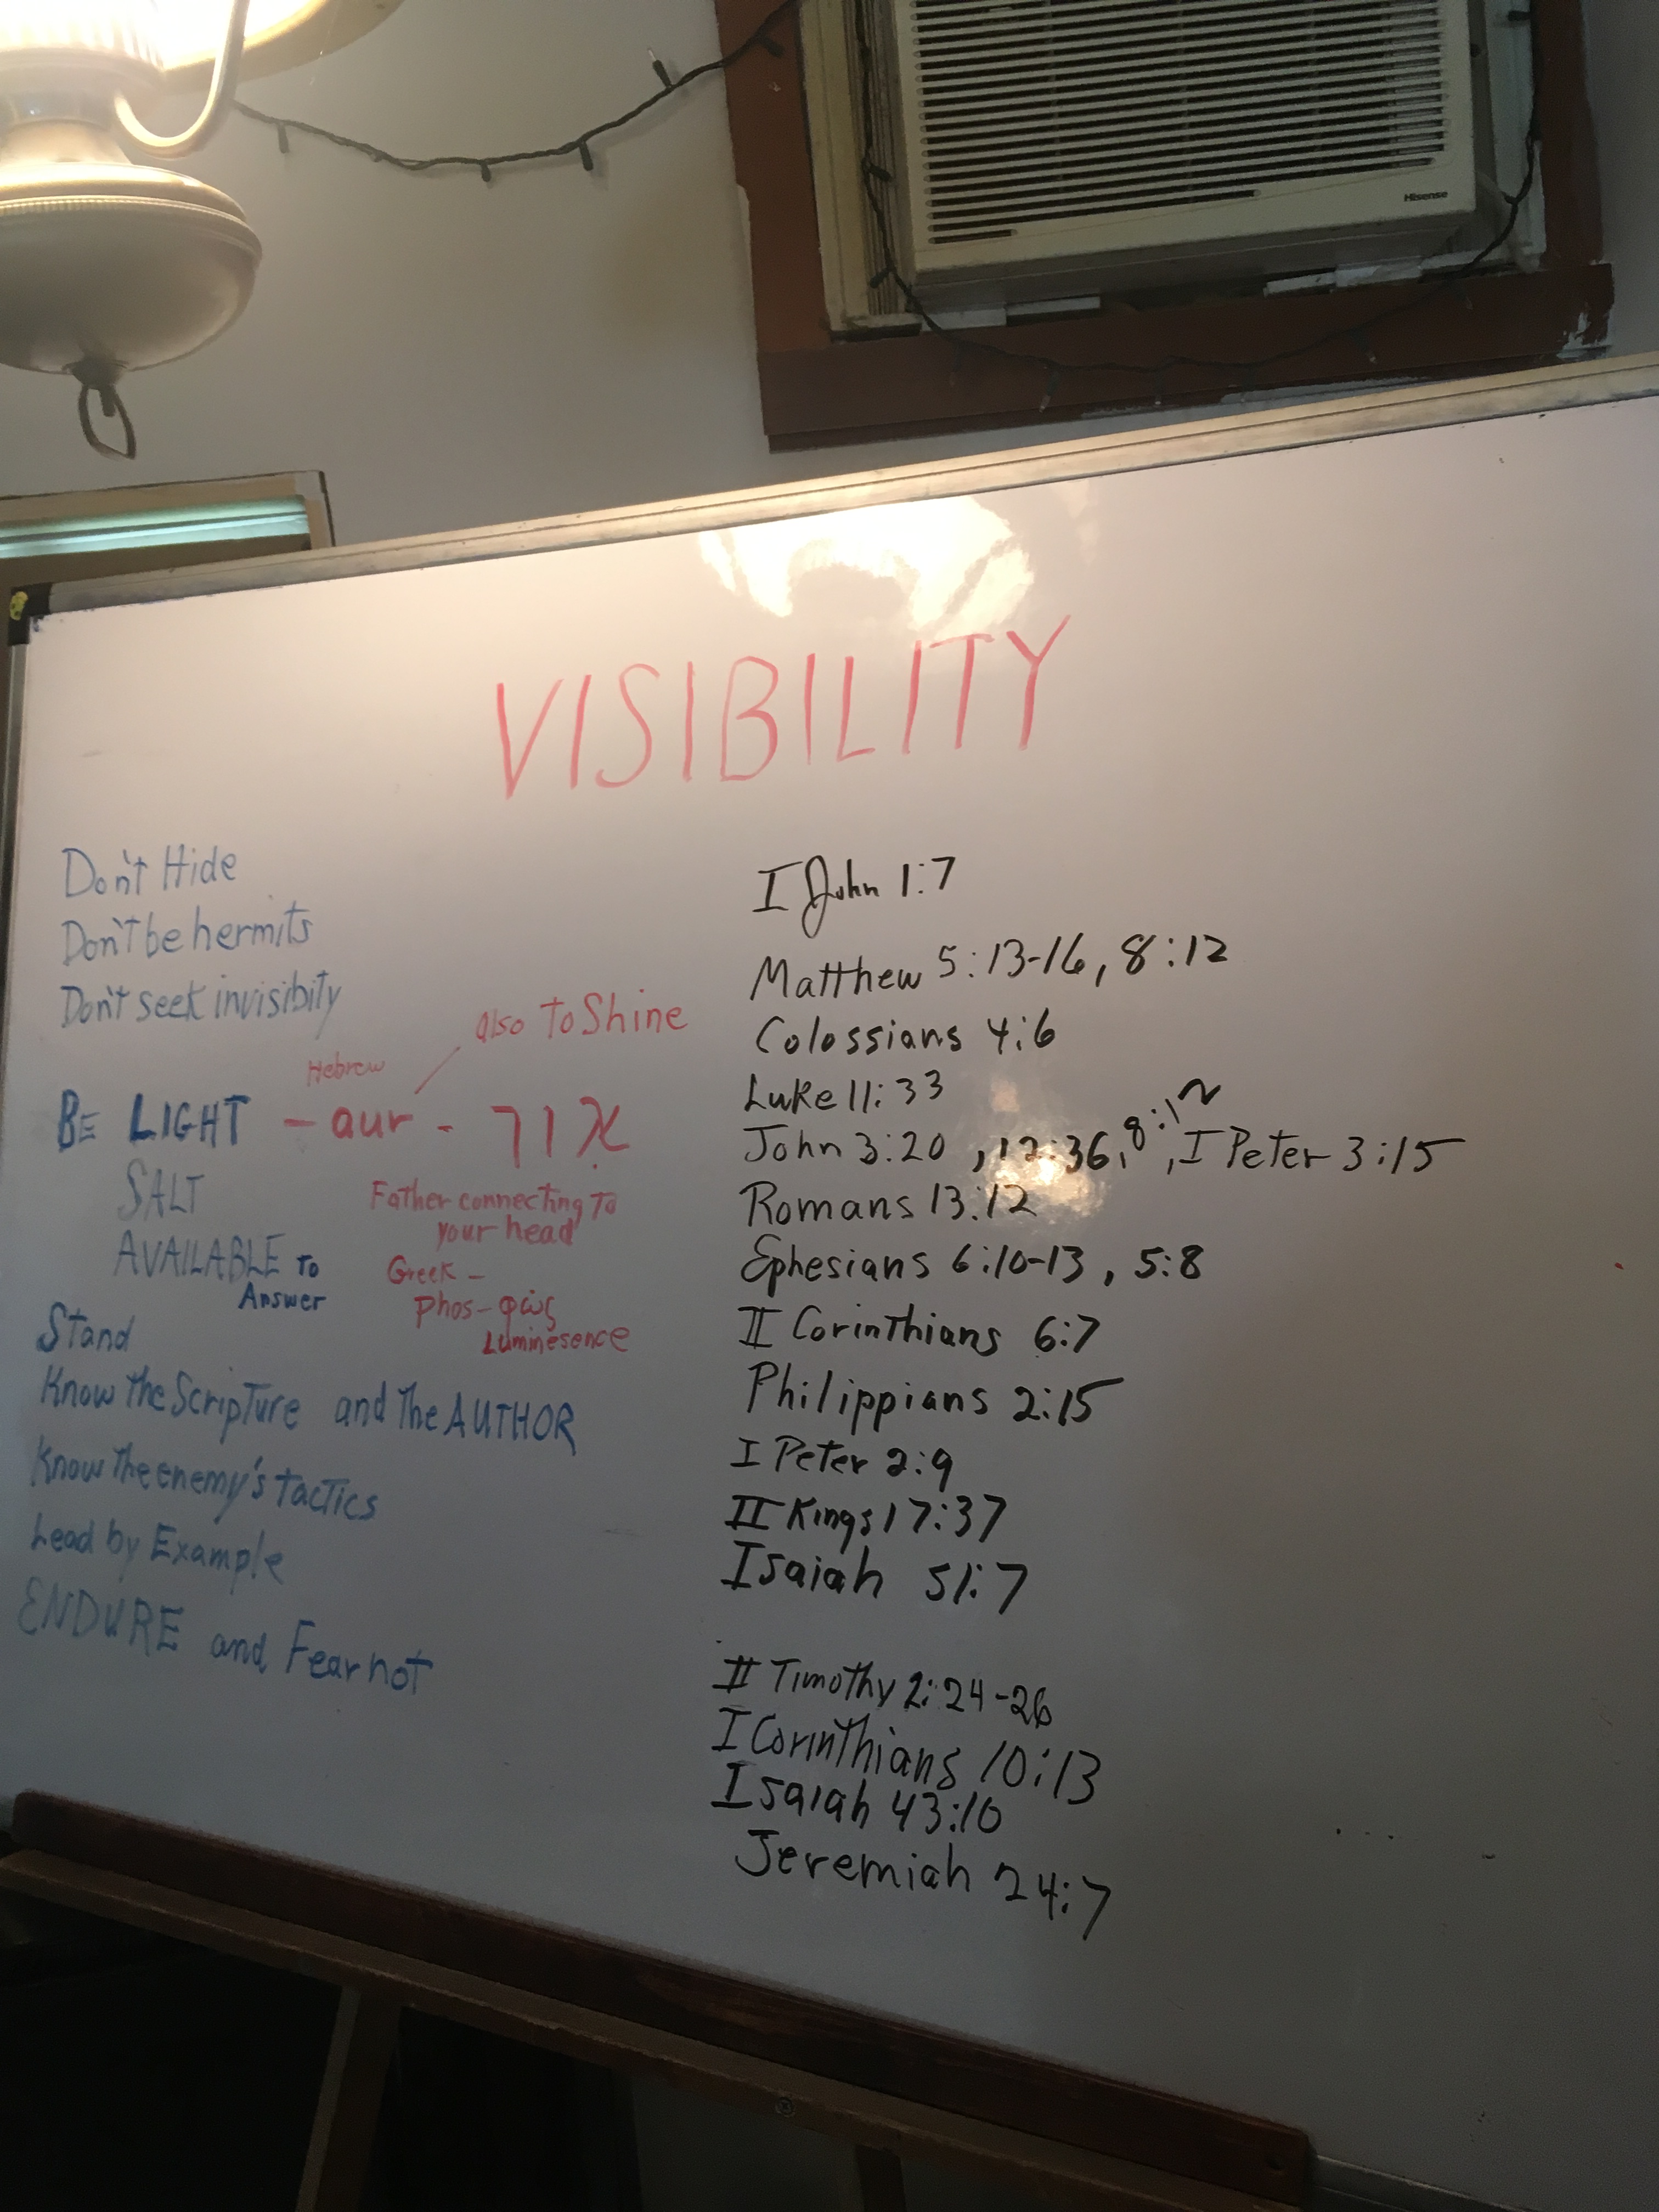 Hisense
VISIBILITY
Don't Hide
Don't be hermits
Don't seek invisibity
also To Shine
Hebrew
BE LIGHT - aur - אור
SALT
Father connecting To
your head
AVAILABLE To
Answer
Greek -
Phos - φώς
Luminesence
Stand
Know The Scripture and The AUTHOR
Know The enemy's tactics
Lead by Example
ENDURE and Fear not
I John 1:7
Matthew 5:13-16, 8:12
Colossians 4:6
Luke 11:33
John 3:20, 12:36, 8:12, I Peter 3:15
Romans 13:12
Ephesians 6:10-13, 5:8
II Corinthians 6:7
Philippians 2:15
I Peter 2:9
II Kings 17:37
Isaiah 51:7
II Timothy 2:24-26
I Corinthians 10:13
Isaiah 43:10
Jeremiah 24:7